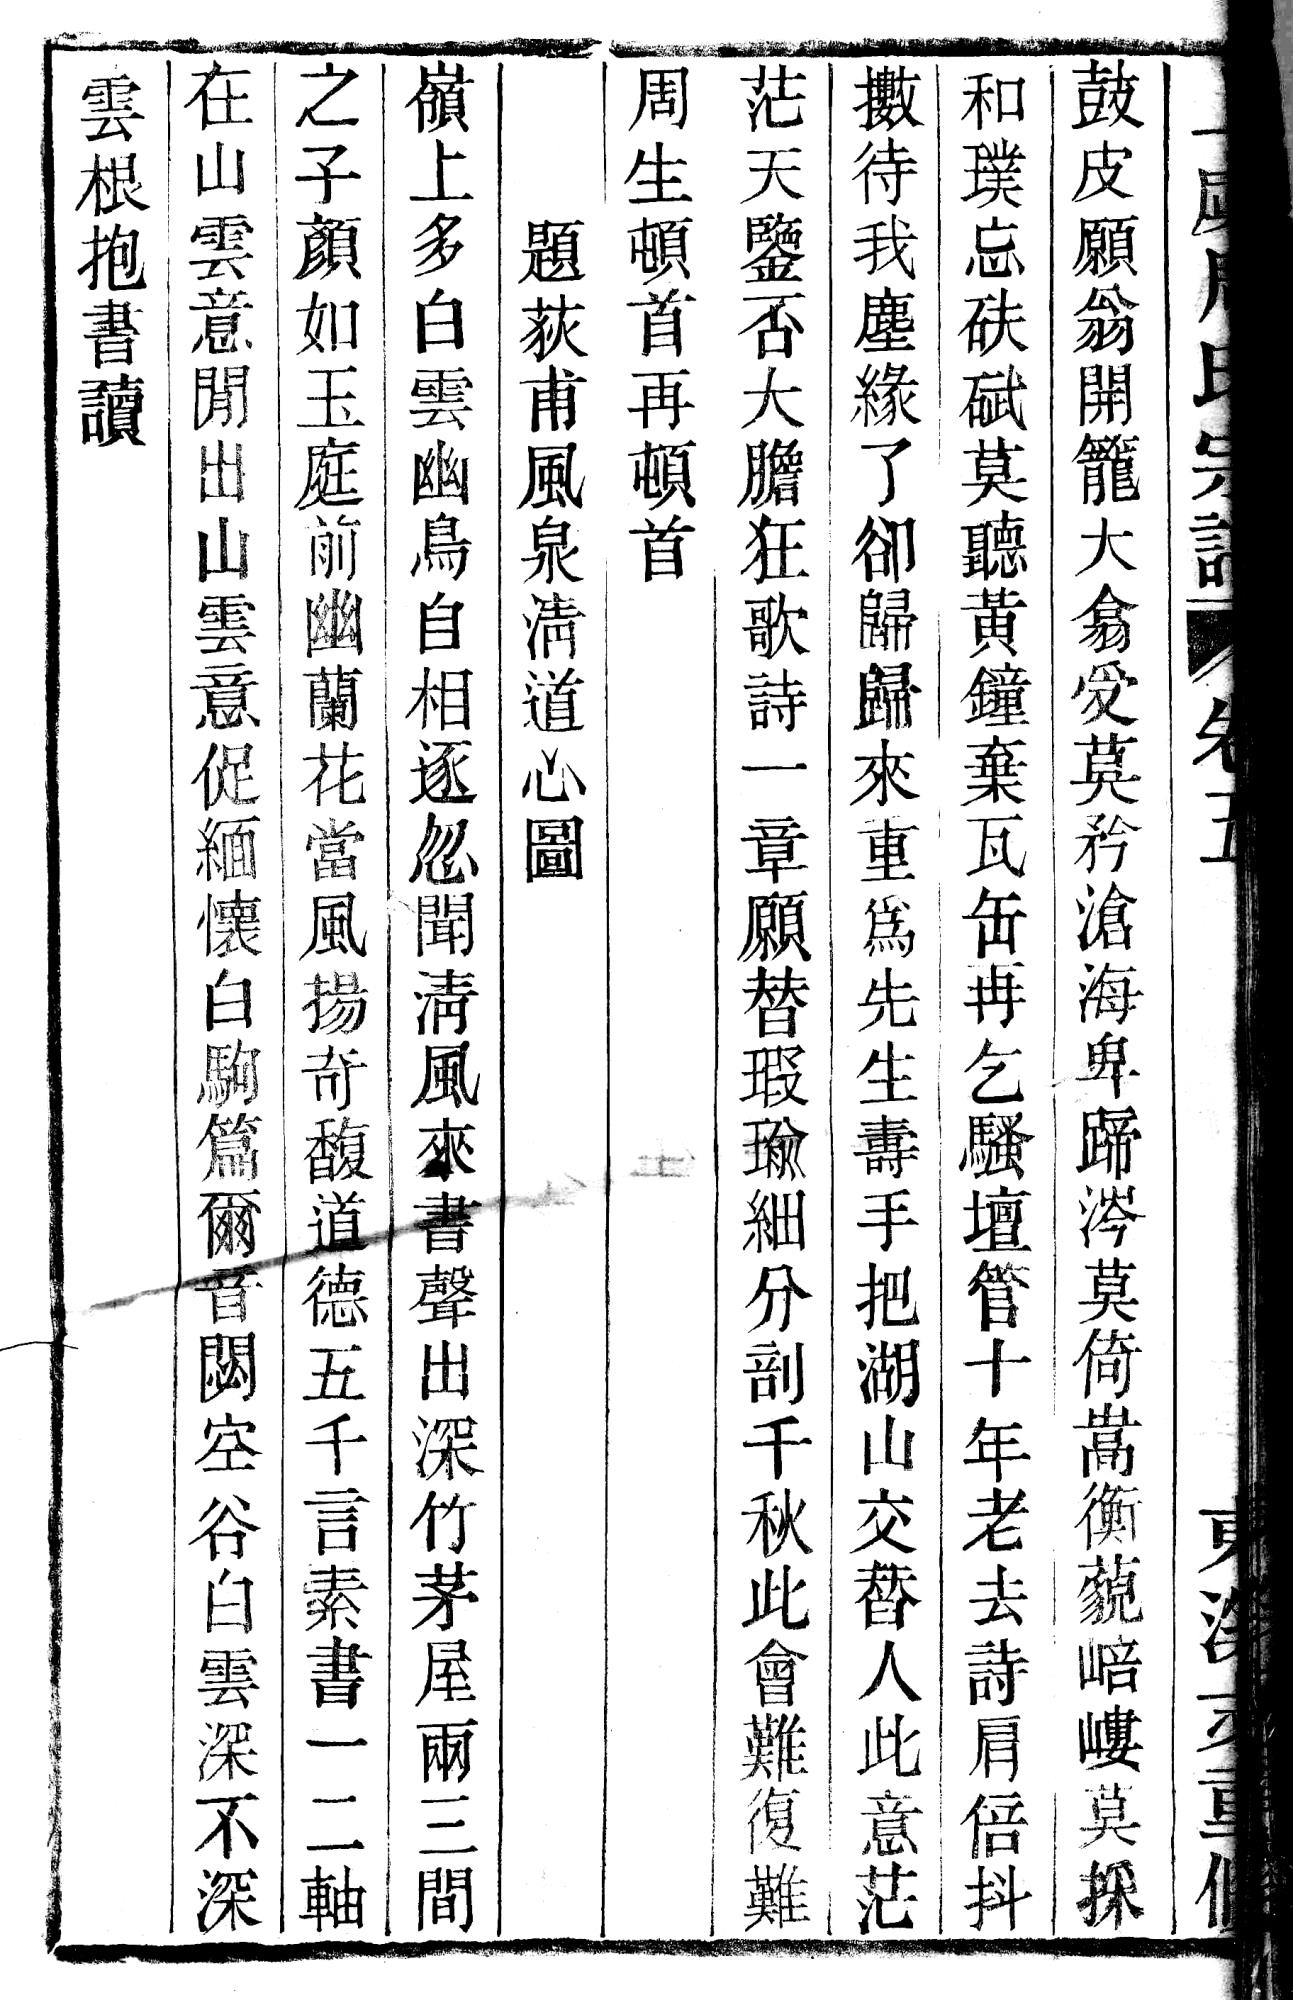 周氏宗譜 卷五
重修
鼓皮願翁開籠大翕受莫矜滄海卑蹄涔莫倚嵩衡藐㟝嶁莫採
和璞忘砆碔莫聽黃鐘棄瓦缶再乞騷壇管十年老去詩肩倍抖
擻待我塵緣了卻歸歸來重爲先生壽手把湖山交替人此意茫
茫天鑒否大膽狂歌詩一章願替瑕瑜細分剖千秋此會難復難
周生頓首再頓首
題荻甫風泉淸道心圖
嶺上多白雲幽鳥自相逐忽聞淸風來書聲出深竹茅屋兩三間
之子顏如玉庭前幽蘭花當風揚奇馥道德五千言素書一二軸
在山雲意閒出山雲意促緬懷白駒篇爾音閟空谷白雲深不深
雲根抱書讀